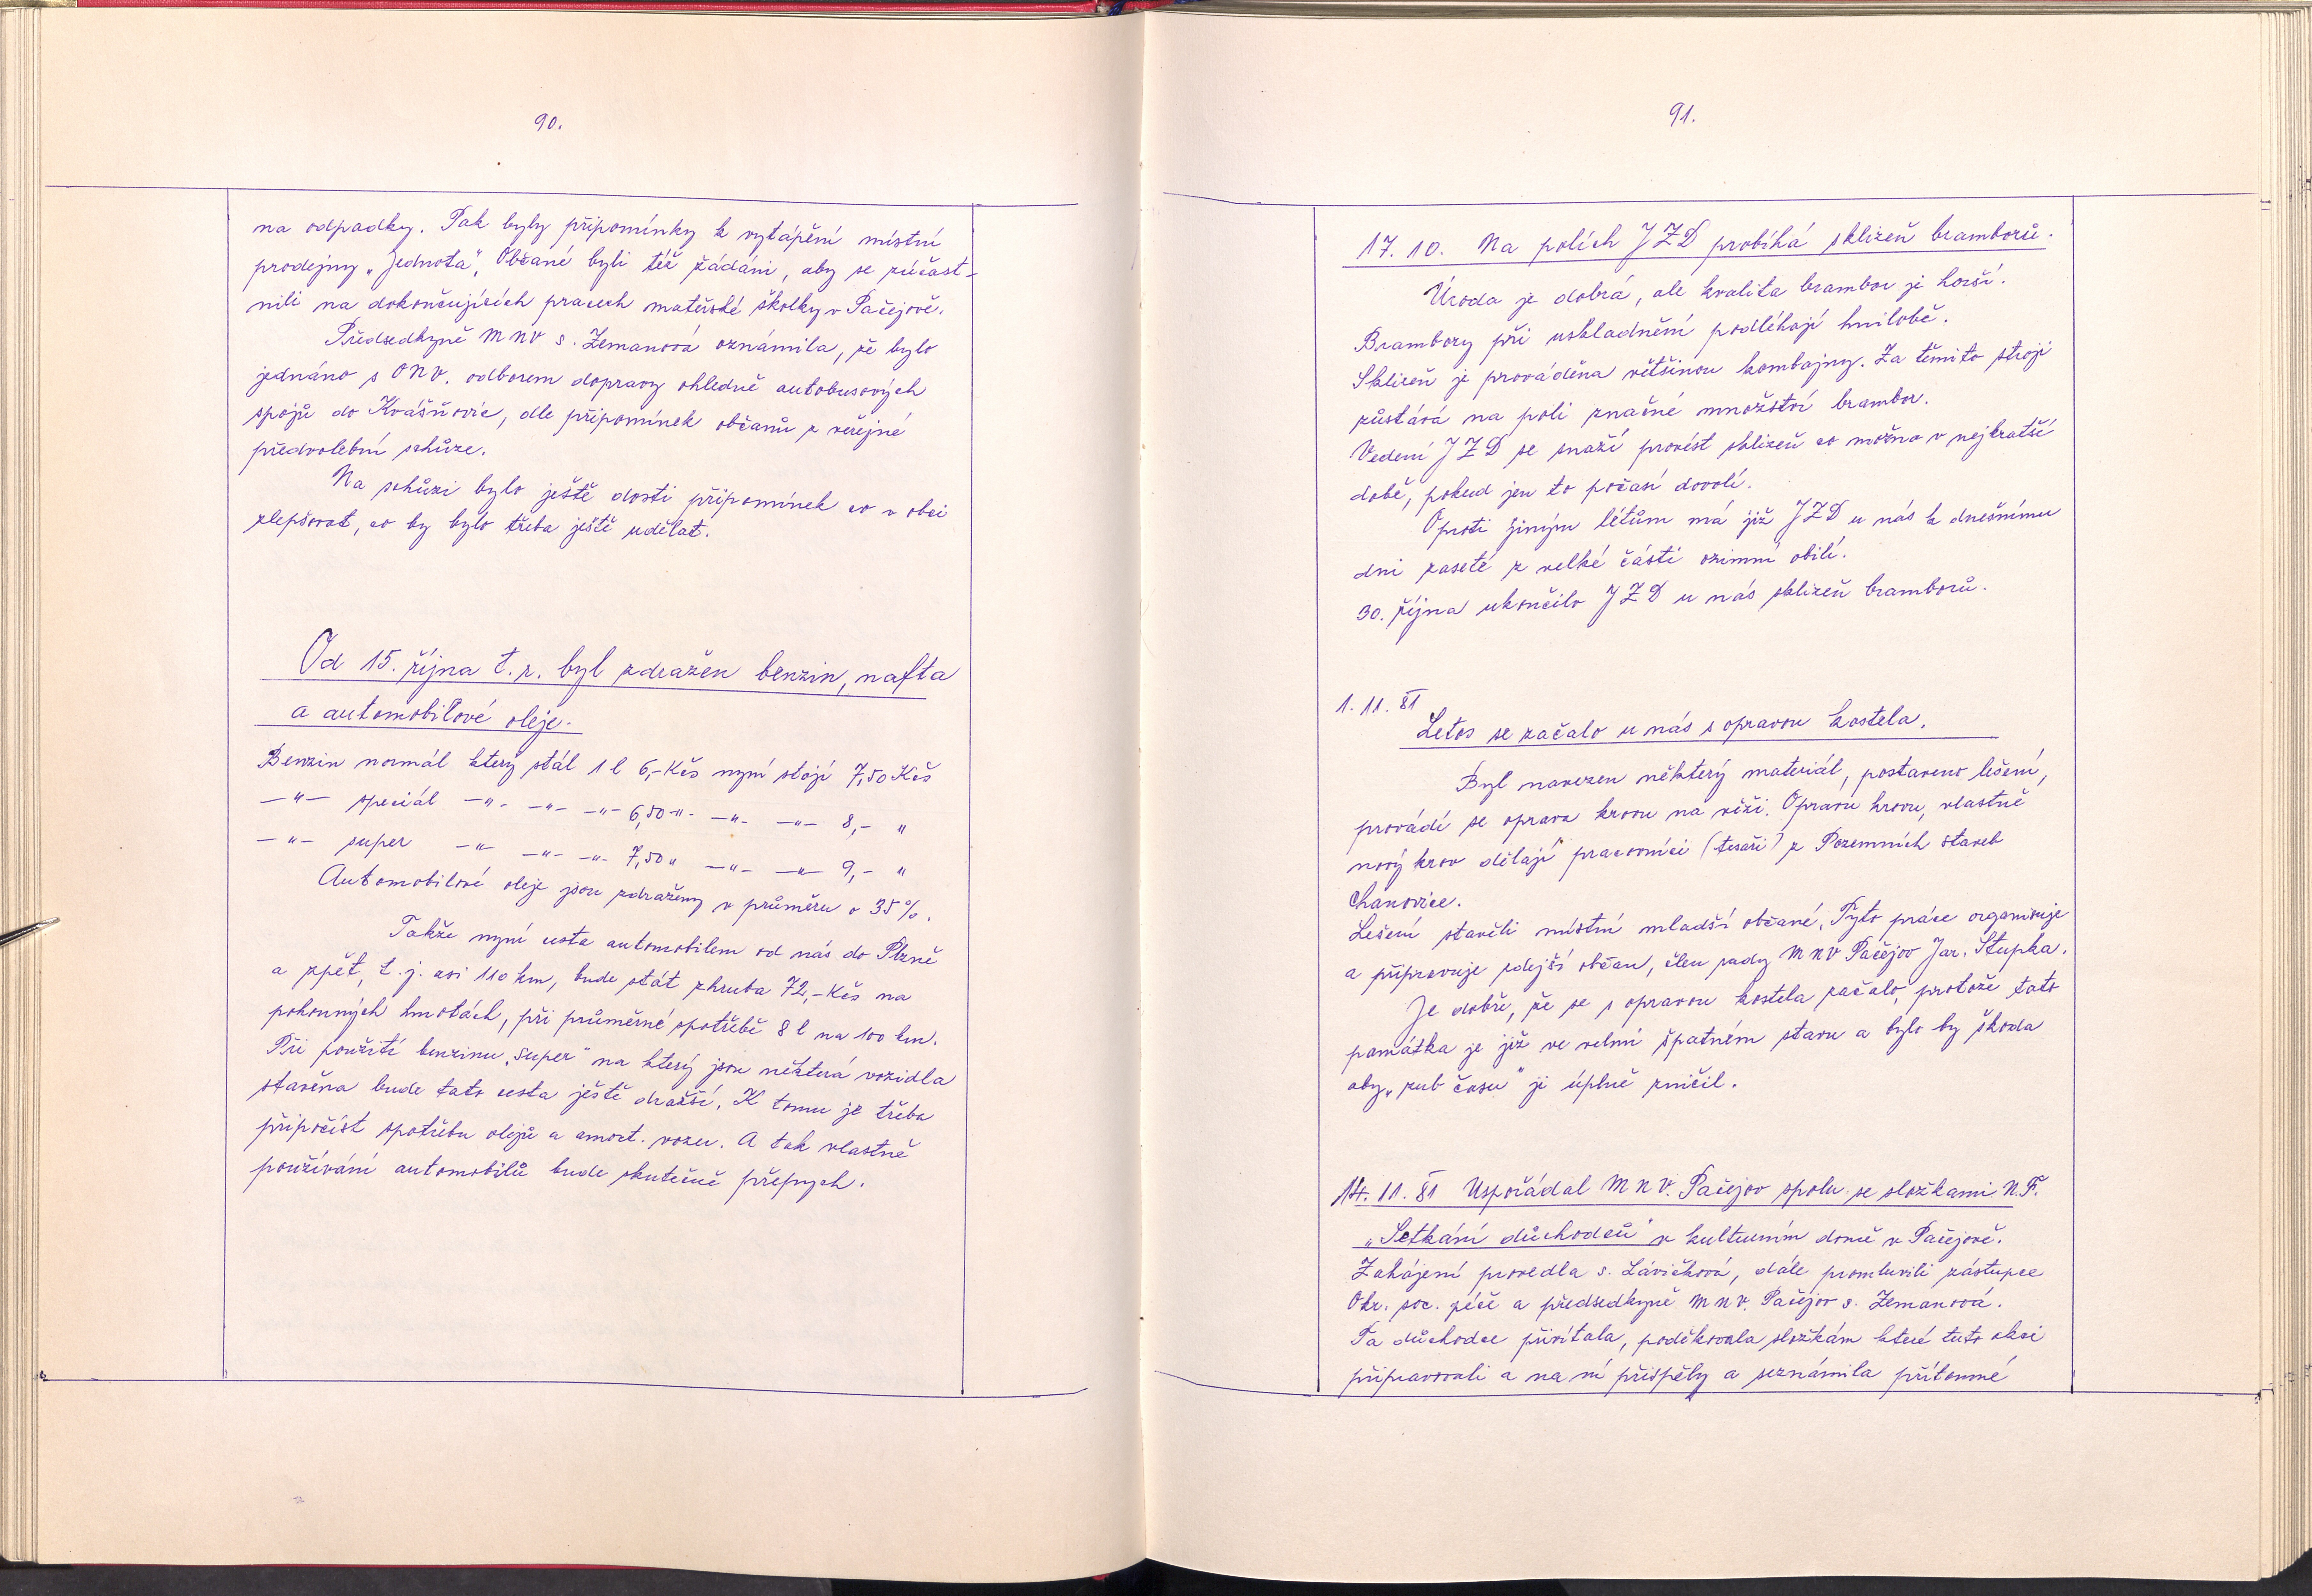 90.
na odpadky. Pak byly připomínky k vytápění místní
prodejny „Jednota“, Občané byli též žádáni, aby se zúčast-
nili na dokončujících pracech mateřské školky v Pačejově.
Předsedkyně MNV s. Zemanová oznámila, že bylo
jednáno s ONV. odborem dopravy ohledně autobusových
spojů do Kvášňovic, dle připomínek občanů z veřejné
předvolební schůze.
Na schůzi bylo ještě dosti připomínek co v obci
zlepšovat, co by bylo třeba ještě udělat.
Od 15. října t.r. byl zdražen benzin, nafta
a automobilové oleje.
Benzin normál který stál 1 l 6,- Kčs nyní stojí 7,50 Kčs
—"— speciál —"- —"- —"- 6,50 -"- —"- —"- 8,- "
—"- super —"- —"- —"- 7,50 " —"- —"- 9,- "
Automobilové oleje jsou zdraženy v průměru o 35%.
Takže nyní cesta automobilem od nás do Plzně
a zpět, t.j. asi 110 km, bude stát zhruba 72,- Kčs na
pohonných hmotách, při průměrné spotřebě 8 l na 100 km.
Při použití benzinu „super“ na který jsou některá vozidla
stavěna bude tato cesta ještě dražší. K tomu je třeba
připočíst spotřebu olejů a amort. vozu. A tak vlastně
používání automobilů bude skutečně přepych.
91.
17. 10. Na polích JZD probíhá sklizeň bramborů.
Úroda je dobrá, ale kvalita brambor je horší.
Brambory při uskladnění podléhají hnilobě.
Sklizeň je prováděna většinou kombajny. Za těmito stroji
zůstává na poli značné množství brambor.
Vedení JZD se snaží provést sklizeň co možno v nejkratší
době, pokud jen to počasí dovolí.
Oproti jiným létům má již JZD u nás k dnešnímu
dni zaseté z velké části ozimní obilí.
30. října ukončilo JZD u nás sklizeň bramborů.
1. 11. 81
Letos se začalo u nás s opravou kostela.
Byl navezen některý materiál, postaveno lešení,
provádí se oprava krovu na věži. Opravu krovu, vlastně
nový krov dělají pracovníci (tesaři) z Pozemních staveb
Chanovice.
Lešení stavěli místní mladší občané. Tyto práce organisuje
a připravuje zdejší občan, člen rady MNV Pačejov Jar. Stupka.
Je dobře, že se s opravou kostela začalo, protože tato
památka je již ve velmi špatném stavu a bylo by škoda
aby „zub času“ ji úplně zničil.
14. 11. 81 Uspořádal MNV. Pačejov spolu se složkami N.F.
„Setkání důchodců“ v kulturním domě v Pačejově.
Zahájení provedla s. Lávičková, dále promluvili zástupce
Okr. soc. péče a předsedkyně MNV. Pačejov s. Zemanová.
Ta důchodce přivítala, poděkovala složkám které tuto akci
připravovali a na ní přispěly a seznámila přítomné